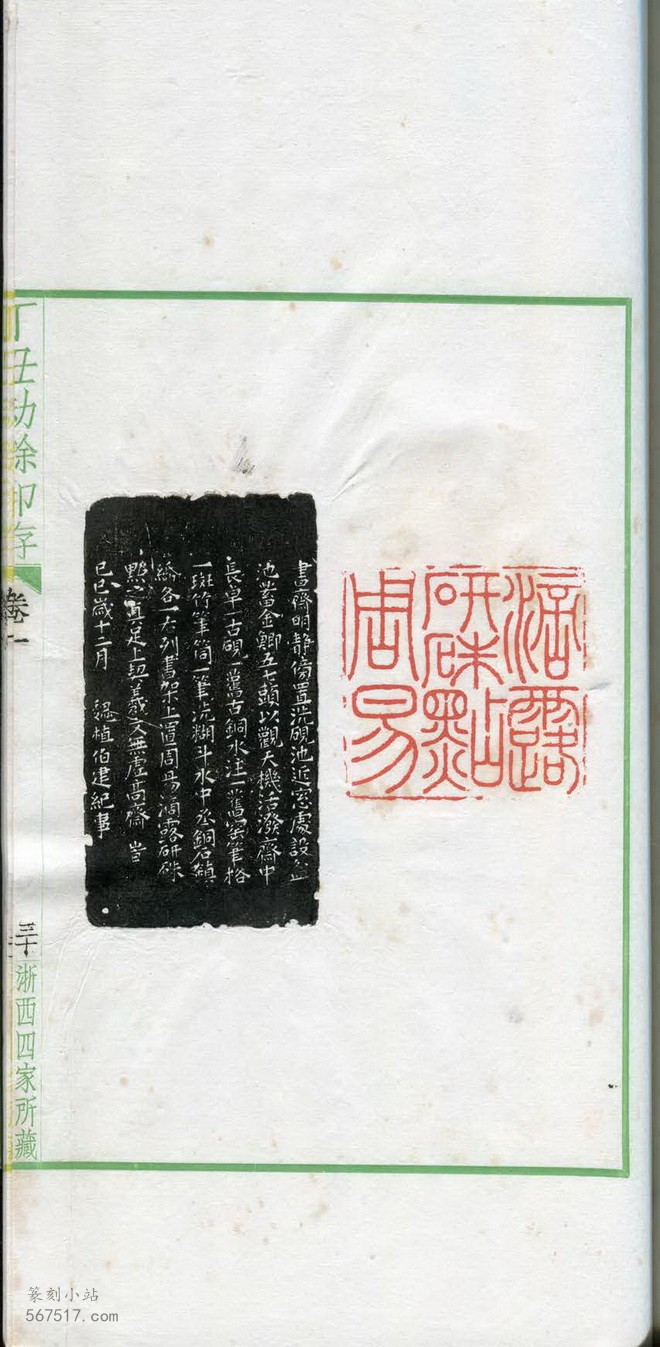 滴露
研硃點
周易
書齋明靜傍置洗硯池近窓處設盆
池蓄金鯽五七頭以觀天機活潑齋中
長卓一古硯一舊古銅水注一舊窑筆格
一斑竹筆筒一筆洗糊斗水中丞銅石鎮
紙各一左列書架上置周易滴露研硃
點之真足上契羲文無虛髙齋
己巳歲十二月 魏植伯建紀事
丁丑劫餘印存
卷一
三十
浙西四家所藏
篆刻小站
567517.com